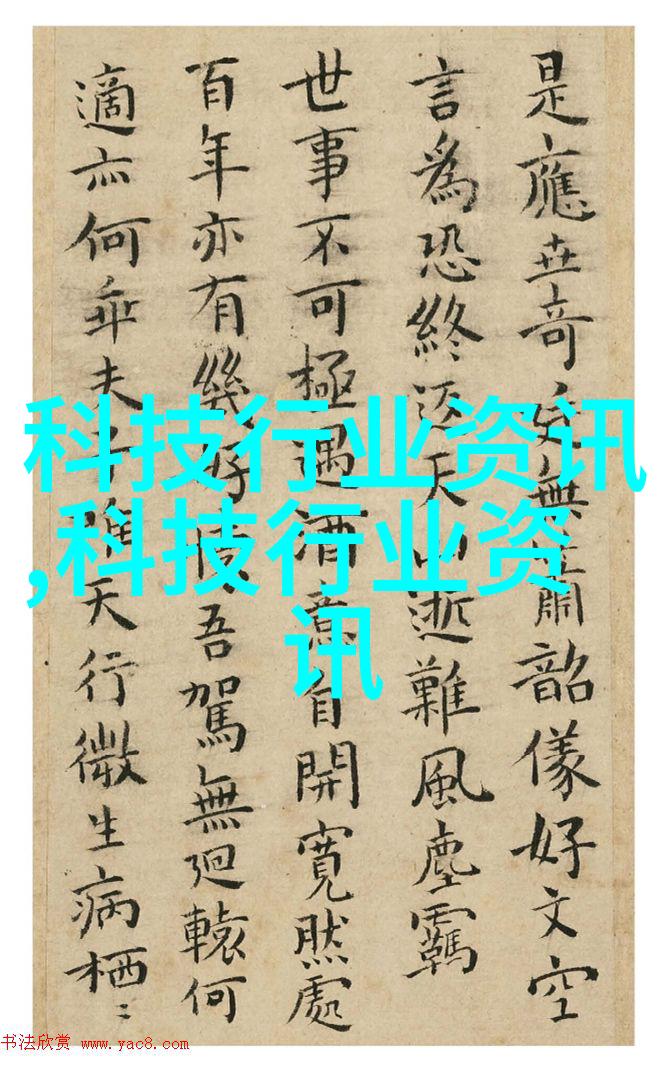 是應世奇無韶儀好文空
言為恐終天逝難風塵羈
世事不可極遇酒意自開寬然處
百年亦有幾好吾駕無迴轅何
適亦何乖夫子唯天行微生病栖〻
科技行业资讯
,科技行业资
讯
书法欣赏 www.yac8.com